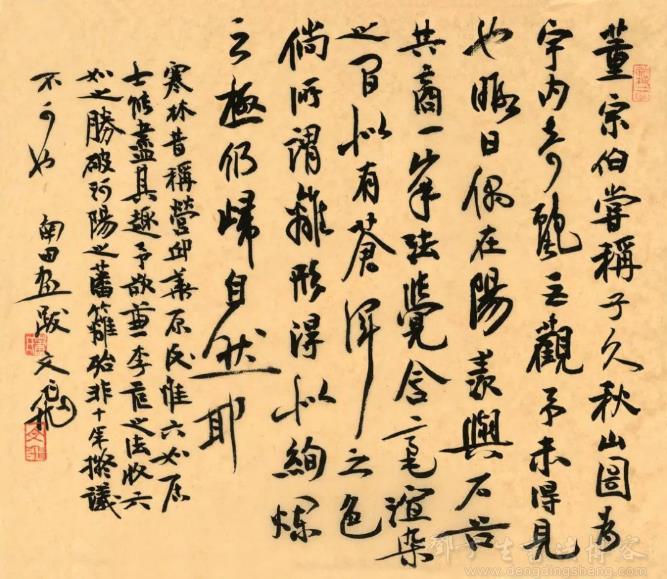 董宗伯嘗稱子久秋山圖為
宇内奇麗之觀予未得見
也暇日偶在陽羨與石谷
共商一峯法覺含毫渲染
之間似有蒼渾之色
倘所謂離形得似絢爛
之極仍歸自然耶
寒林昔稱營邱華原後惟六如居
士能盡其趣予欲兼李范之法收六
如之勝破河陽之藩籬殆非十年擬議
不可也 南田画跋 文
邓丁生书法博客
www.dengdingsheng.com